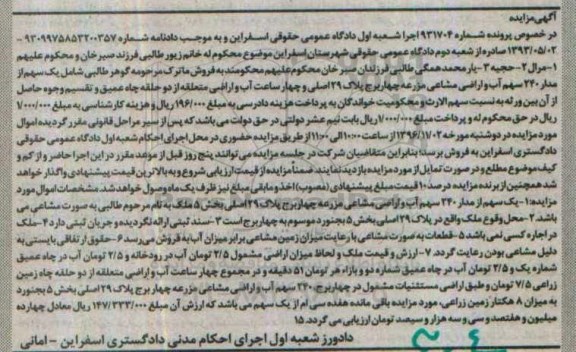 آگهی مزایده
در خصوص پرونده شماره ۹۳۱۷۰۴ اجرا شعبه اول دادگاه عمومی حقوقی اسفراین و به موجب دادنامه شماره ۹۳۰۹۹۷۵۸۵۳۲۰۰۳۵۷ -
۱۳۹۳/۰۵/۰۲ صادره از شعبه دوم دادگاه عمومی حقوقی شهرستان اسفراین موضوع محکوم له خانم زیور طالبی فرزند صبر خان و محکوم علیهم
۱-مرال ۲- حجیه ۳- یار محمد همگی طالبی فرزندان صبر خان محکوم علیهم محکومند به فروش ماترک مرحومه گوهر طالبی شامل یک سهم از
مدار ۲۴۰ سهم آب و اراضی مشاعی مزرعه چهاربرج پلاک ۲۹ اصلی و چهار ساعت آب و اراضی متعلقه از دو حلقه چاه عمیق و تقسیم وجوه حاصل
از آن بین ورثه به نسبت سهم الارث و محکومیت خواندگان به پرداخت هزینه دادرسی به مبلغ ۱۹۶/۰۰۰ ریال و هزینه کارشناسی به مبلغ ۱/۰۰۰/۰۰۰
ریال در حق محکوم له و پرداخت مبلغ ۱/۰۰۰/۰۰۰ ریال بابت نیم عشر دولتی در حق دولت می باشد که پس از سیر مراحل قانونی مقرر گردیده اموال
مورد مزایده در دوشنبه مورخه ۱۳۹۶/۱۱/۰۲ از ساعت ۱۰:۰۰ الی ۱۱:۰۰ از طریق مزایده حضوری در محل اجرای احکام شعبه اول دادگاه عمومی حقوقی
دادگستری اسفراین به فروش برسد؛ بنابراین متقاضیان شرکت در جلسه مزایده می توانند پنج روز قبل از موعد مقرر در این اجرا حاضر و از کم و
کیف موضوع مطلع و در صورت تمایل از مورد مزایده بازدید نمایند. ضمناً مزایده از قیمت ارزیابی شروع و به بالاترین قیمت پیشنهادی واگذار خواهد
شد همچنین از برنده مزایده در صد ۱۰ قیمت مبلغ پیشنهادی (مصوب) اخذ و مابقی مبلغ نیز ظرف یک ماه وصول خواهد شد. مشخصات اموال مورد
مزایده: ۱- یک سهم از مدار ۲۴۰ سهم آب و اراضی مشاعی مزرعه چهاربرج پلاک ۲۹ اصلی بخش ۵ ملک به نام مرحوم طالبی به صورت مشاعی می
باشد. ۲- محل وقوع ملک واقع در پلاک ۲۹ اصلی بخش ۵ بجنورد موسوم به چهاربرج است ۳- سند ثبتی ارائه نگردیده و جریان ثبتی دارد ۴- ملک
در اجاره کسی نمی باشد ۵- قطعات به صورت مشاعی با رعایت میزان زمین مشاعی برابر میزان آب به فروش می رسد ۶- حقوق ارتفاقی بایستی به
دلیل مشاعی بودن رعایت گردد. ۷- ارزش و قیمت ملک و لحاظ میزان اراضی مشمول ۲/۵ تومان آب در رودخانه و ۲/۵ تومان آب در چاه عمیق
شماره یک و ۲/۵ تومان آب در چاه عمیق شماره دو و بازاء هر تومان ۵۱ دقیقه و در مجموع چهار ساعت آب و اراضی متعلقه از دو حلقه چاه زمین
زراعی ۷/۵ تومان و طبق اراضی مستثنیات مشمول در چهاربرج، ۲۴۰ سهم آب و اراضی مشاعی مزرعه چهار برج پلاک ۲۹ اصلی بخش ۵ بجنورد
به میزان ۸ هکتار زمین زراعی، مورد مزایده باقی مانده هفده سی ام از یک سهم می باشد که ارزش آن مبلغ ۱۴۷/۳۳۳/۰۰۰ ریال معادل چهارده
میلیون و هفتصد و سی و سه هزار و سیصد تومان ارزیابی می گردد. ۱۵
دادورز شعبه اول اجرای احکام مدنی دادگستری اسفراین - امانی